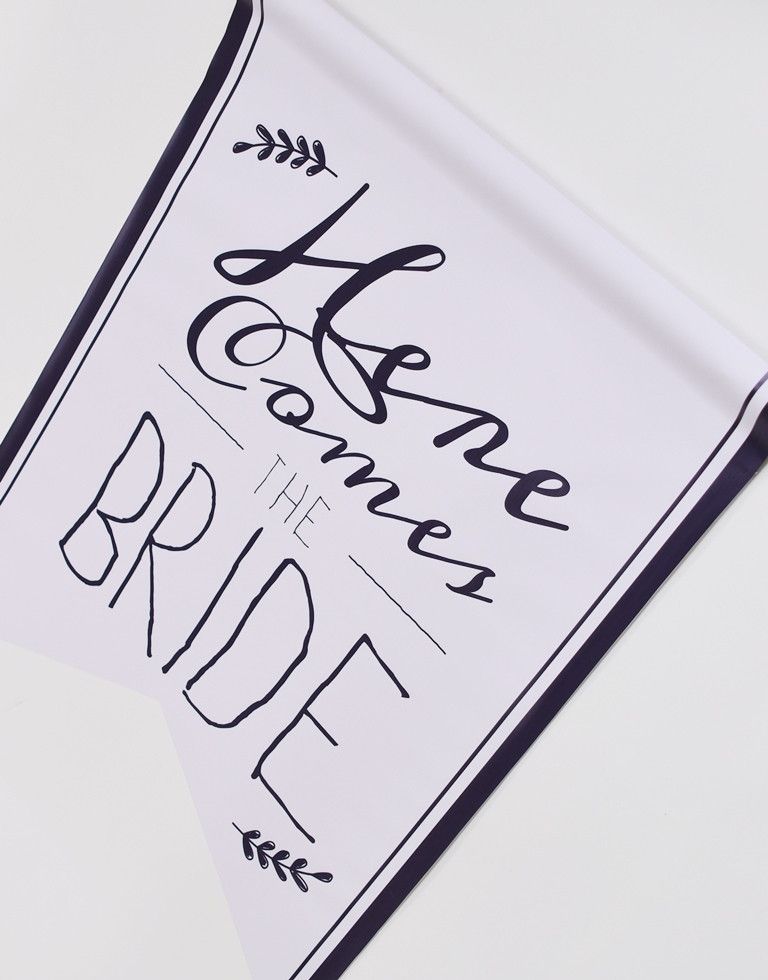 Here
Comes
THE
BRIDE